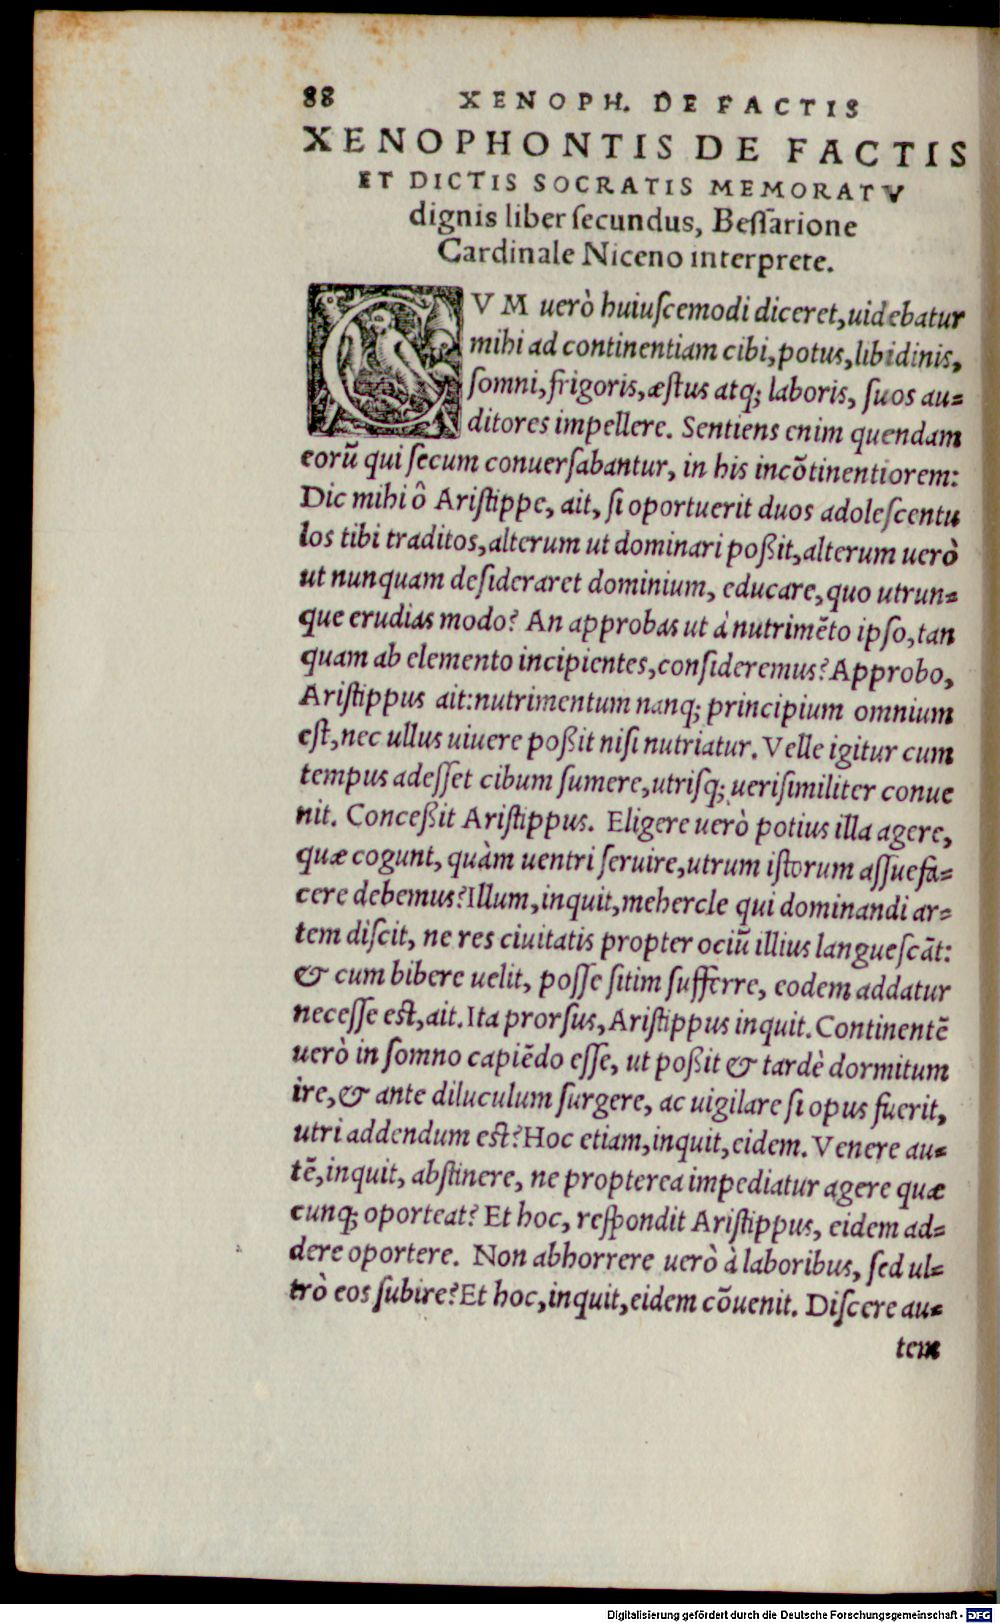 88 XENOPH. DE FACTIS
XENOPHONTIS DE FACTIS
ET DICTIS SOCRATIS MEMORATV
dignis liber ſecundus, Beſſarione
Cardinale Niceno interprete.
CVM uerò huiuſcemodi diceret, uidebatur
mihi ad continentiam cibi, potus, libidinis,
ſomni, frigoris, æſtus atq; laboris, ſuos au⸗
ditores impellere. Sentiens enim quendam
eorū qui ſecum conuerſabantur, in his incōtinentiorem:
Dic mihi ô Ariſtippe, ait, ſi oportuerit duos adoleſcentu
los tibi traditos, alterum ut dominari poßit, alterum uerò
ut nunquam deſideraret dominium, educare, quo utrun⸗
que erudias modo? An approbas ut à nutrimēto ipſo, tan
quam ab elemento incipientes, conſideremus? Approbo,
Ariſtippus ait: nutrimentum nanq; principium omnium
eſt, nec ullus uiuere poßit niſi nutriatur. Velle igitur cum
tempus adeſſet cibum ſumere, utriſq; ueriſimiliter conue
nit. Conceßit Ariſtippus. Eligere uerò potius illa agere,
quæ cogunt, quàm uentri ſeruire, utrum iſtorum aſſuefa⸗
cere debemus? Illum, inquit, mehercle qui dominandi ar⸗
tem diſcit, ne res ciuitatis propter ociū illius langueſcāt:
& cum bibere uelit, poſſe ſitim ſufferre, eodem addatur
neceſſe eſt, ait. Ita prorſus, Ariſtippus inquit. Continentē
uerò in ſomno capiēdo eſſe, ut poßit & tardè dormitum
ire, & ante diluculum ſurgere, ac uigilare ſi opus fuerit,
utri addendum eſt? Hoc etiam, inquit, eidem. Venere au⸗
tē, inquit, abſtinere, ne propterea impediatur agere quæ
cunq; oporteat? Et hoc, reſpondit Ariſtippus, eidem ad⸗
dere oportere. Non abhorrere uerò à laboribus, ſed ul⸗
trò eos ſubire? Et hoc, inquit, eidem cōuenit. Diſcere au⸗
tem
Digitalisierung gefördert durch die Deutsche Forschungsgemeinschaft - DFG